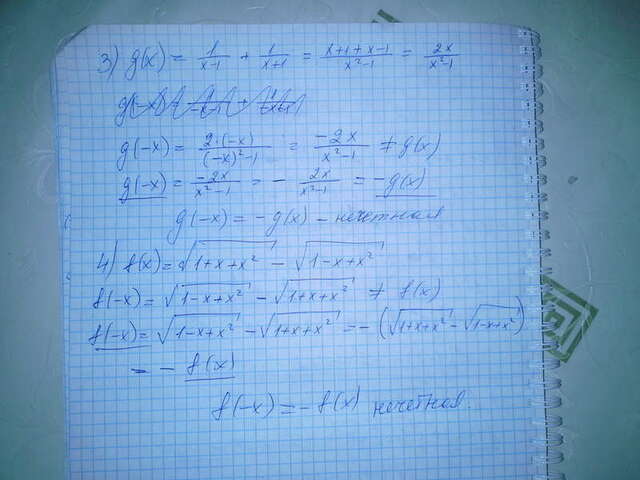 3) g(x) = 1/(x-1) + 1/(x+1) = (x+1+x-1)/(x²-1) = 2x/(x²-1)
g(-x) = 2·(-x)/((-x)²-1) = -2x/(x²-1) ≠ g(x)
g(-x) = -2x/(x²-1) = - 2x/(x²-1) = -g(x)
g(-x) = -g(x) - нечетная
4) f(x) = √(1+x+x²) - √(1-x+x²)
f(-x) = √(1-x+x²) - √(1+x+x²) ≠ f(x)
f(-x) = √(1-x+x²) - √(1+x+x²) = - (√(1+x+x²) - √(1-x+x²))
= - f(x)
f(-x) = -f(x) нечетная.